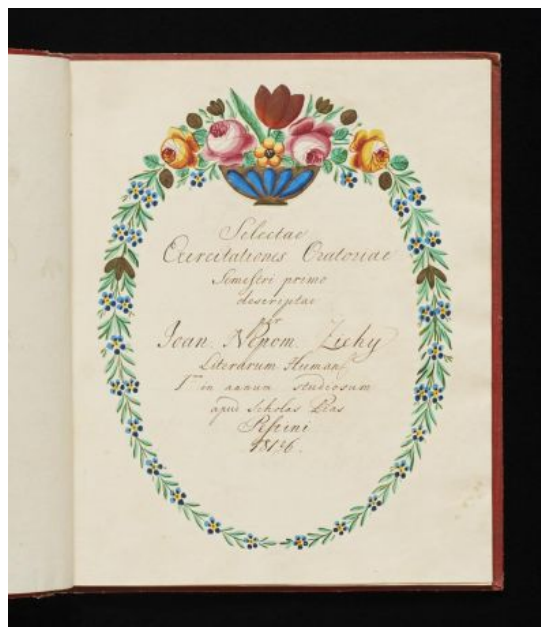 Selectae
Exercitationes Oratoriae
Semestri primo
descriptae
per
Joan. Nepom. Zichy
Literarum Human.
in annum studiosum
apud Scholas Pias